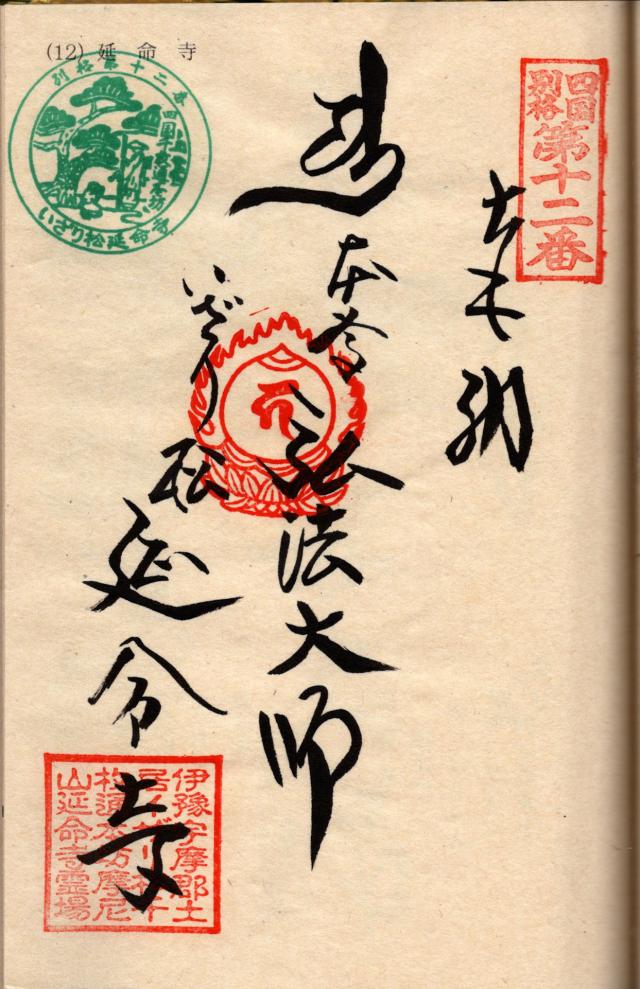 (12) 延命寺
別格第十二番
いざり松延命寺
四国
別格
第十二番
奉納
本尊
弘法大師
いざり松
延命寺
伊豫宇摩郡土
居イザリ松千
枚通本坊摩尼
山延命寺霊場